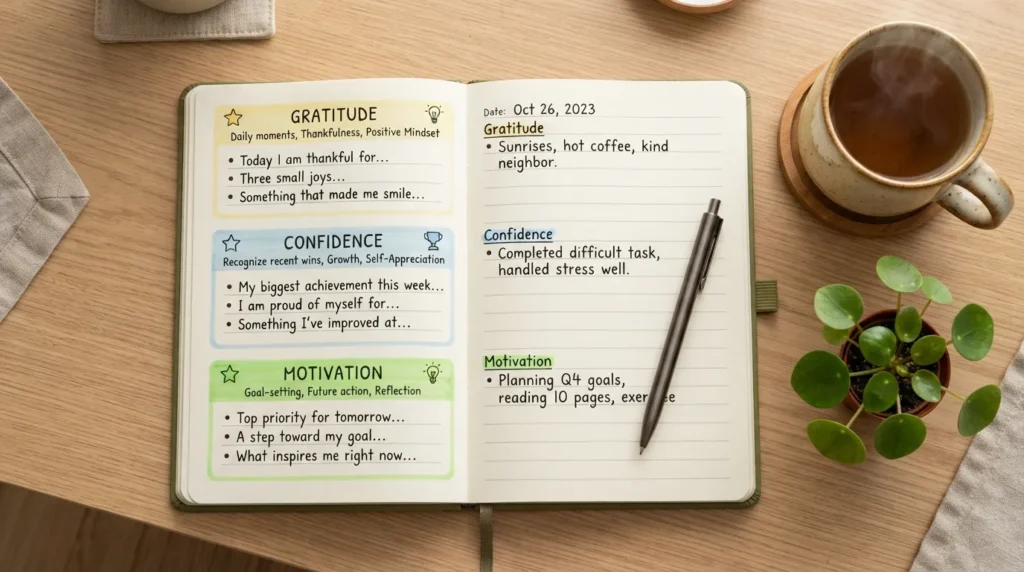 GRATITUDE
Daily moments, Thankfulness, Positive Mindset
• Today I am thankful for...
• Three small joys...
• Something that made me smile...
CONFIDENCE
Recognize recent wins, Growth, Self-Appreciation
• My biggest achievement this week...
• I am proud of myself for...
• Something I've improved at...
MOTIVATION
Goal-setting, Future action, Reflection
• Top priority for tomorrow...
• A step toward my goal...
• What inspires me right now...
Date: Oct 26, 2023
Gratitude
• Sunrises, hot coffee, kind
neighbor.
Confidence
• Completed difficult task,
handled stress well.
Motivation
• Planning Q4 goals,
reading 10 pages,